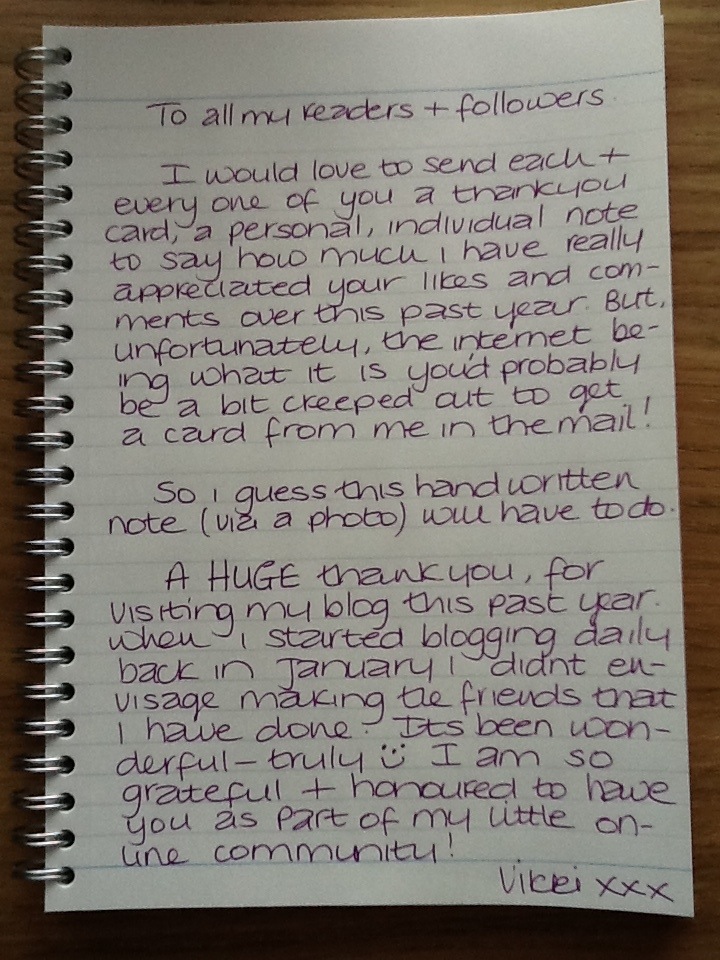 To all my readers + followers.
I would love to send each +
every one of you a thankyou
card, a personal, individual note
to say how much I have really
appreciated your likes and com-
ments over this past year. But,
unfortunately, the internet be-
ing what it is you'd probably
be a bit creeped out to get
a card from me in the mail!
So I guess this handwritten
note (via a photo) will have to do.
A HUGE thankyou, for
visiting my blog this past year.
When I started blogging daily
back in January I didnt en-
visage making the friends that
I have done. Its been won-
derful - truly ☺ I am so
grateful + honoured to have
you as part of my little on-
line community!
Vikki xxx